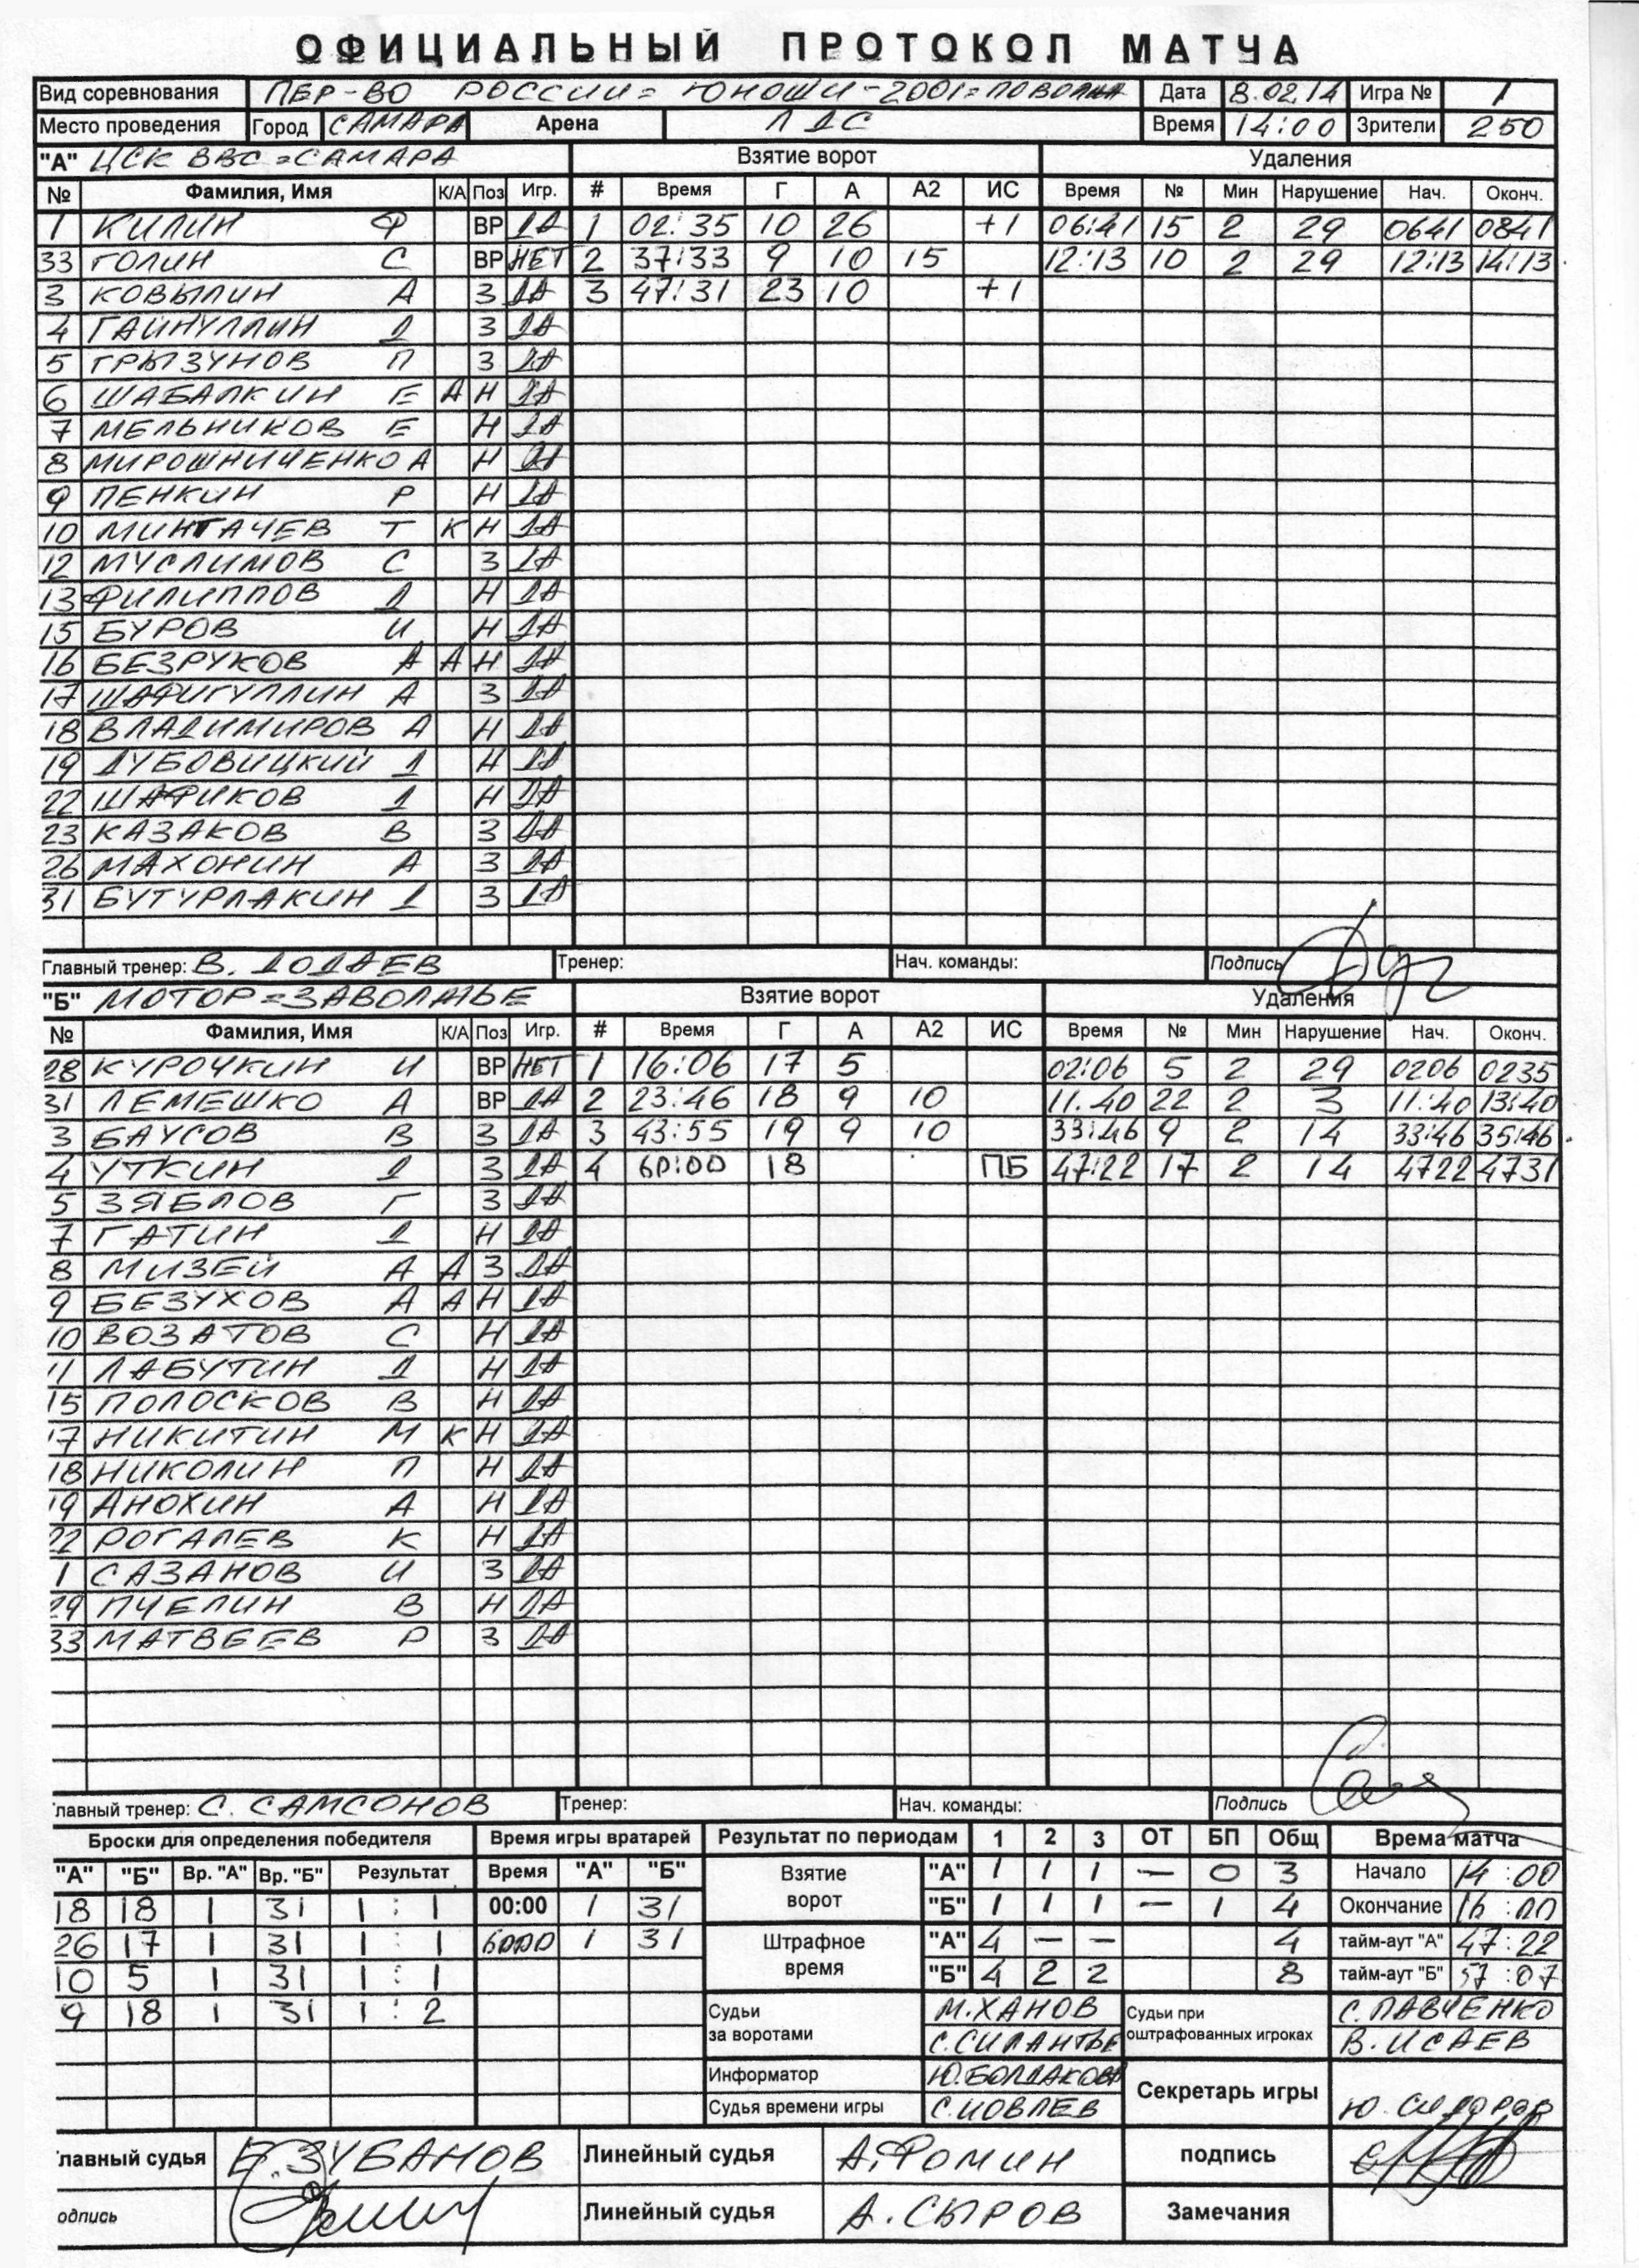 ОФИЦИАЛЬНЫЙ ПРОТОКОЛ МАТЧА
Вид соревнования ПЕР-ВО РОССИИ= ЮНОШИ-2001= Дата 8.02.14 Игра № 1
Место проведения Город САМАРА Арена ЛДС Время 14:00 Зрители 250
"А" ЦСК ВВС=САМАРА Взятие ворот Удаления
№ Фамилия, Имя К/А Поз Игр. # Время Г А А2 ИС Время № Мин Нарушение Нач. Оконч.
1 КИЛИН Ф ВР ДА 1 02:35 10 26 +1 06:41 15 2 29 0641 0841
33 ГОЛИН С ВР НЕТ 2 37:33 9 10 15 12:13 10 2 29 12:13 14:13
3 КОВЫЛИН А З ДА 3 47:31 23 10 +1
4 ГАЙНУЛЛИН Д З ДА
5 ГРЫЗУНОВ П З ДА
6 ШАБАЛКИН Е А Н ДА
7 МЕЛЬНИКОВ Е Н ДА
8 МИРОШНИЧЕНКО А Н ДА
9 ПЕНКИН Р Н ДА
10 МИНГАЧЕВ Т К Н ДА
12 МУСЛИМОВ С З ДА
13 ФИЛИППОВ Д Н ДА
15 БУРОВ И Н ДА
16 БЕЗРУКОВ А А Н ДА
17 ШАФИГУЛЛИН А З ДА
18 ВЛАДИМИРОВ А Н ДА
19 ДУБОВИЦКИЙ Д Н ДА
22 ШАФИКОВ Д Н ДА
23 КАЗАКОВ В З ДА
26 МАХОНИН А З ДА
31 БУТУРЛАКИН Д З ДА
Главный тренер: В. ДОДАЕВ Тренер: Нач. команды: Подпись
"Б" МОТОР=ЗАВОЛЖЬЕ Взятие ворот Удаления
№ Фамилия, Имя К/А Поз Игр. # Время Г А А2 ИС Время № Мин Нарушение Нач. Оконч.
28 КУРОЧКИН И ВР НЕТ 1 16:06 17 5 02:06 5 2 29 0206 0235
31 ЛЕМЕШКО А ВР ДА 2 23:46 18 9 10 11.40 22 2 3 11:40 13:40
3 БАУСОВ В З ДА 3 43:55 19 9 10 33:46 9 2 14 33:46 35:46
4 УТКИН Д З ДА 4 60:00 18 ПБ 47:22 17 2 14 4722 4731
5 ЗЯБЛОВ Г З ДА
7 ГАТИН Д Н ДА
8 МИЗЕЙ А А З ДА
9 БЕЗУХОВ А А Н ДА
10 ВОЗАТОВ С Н ДА
11 ЛАБУТИН Д Н ДА
15 ПОЛОСКОВ В Н ДА
17 НИКИТИН М К Н ДА
18 НИКОЛИН П Н ДА
19 АНОХИН А Н ДА
22 РОГАЛЕВ К Н ДА
1 САЗАНОВ И З ДА
29 ПЧЕЛИН В Н ДА
33 МАТВЕЕВ Р З ДА
лавный тренер: С. САМСОНОВ Тренер: Нач. команды: Подпись
Броски для определения победителя Время игры вратарей Результат по периодам 1 2 3 ОТ БП Общ Врема матча
"А" "Б" Вр. "А" Вр. "Б" Результат Время "А" "Б" Взятие ворот "А" 1 1 1 — 0 3 Начало 14:00
18 18 1 31 1:1 00:00 1 31 "Б" 1 1 1 — 1 4 Окончание 16:00
26 17 1 31 1:1 6000 1 31 Штрафное время "А" 4 — — 4 тайм-аут "А" 47:22
10 5 1 31 1:1 "Б" 4 2 2 8 тайм-аут "Б" 57:07
9 18 1 31 1:2 Судьи за воротами М.ХАНОВ Судьи при оштрафованных игроках С.ПАВЧЕНКО
С.СИЛАНТЬЕ В.ИСАЕВ
Информатор Ю.БОЛДАКОВА Секретарь игры Ю. СИДОРОВ
Судья времени игры С.ИОВЛЕВ
лавный судья Е.ЗУБАНОВ Линейный судья А.ФОМИН подпись
одпись Линейный судья А.СЫРОВ Замечания